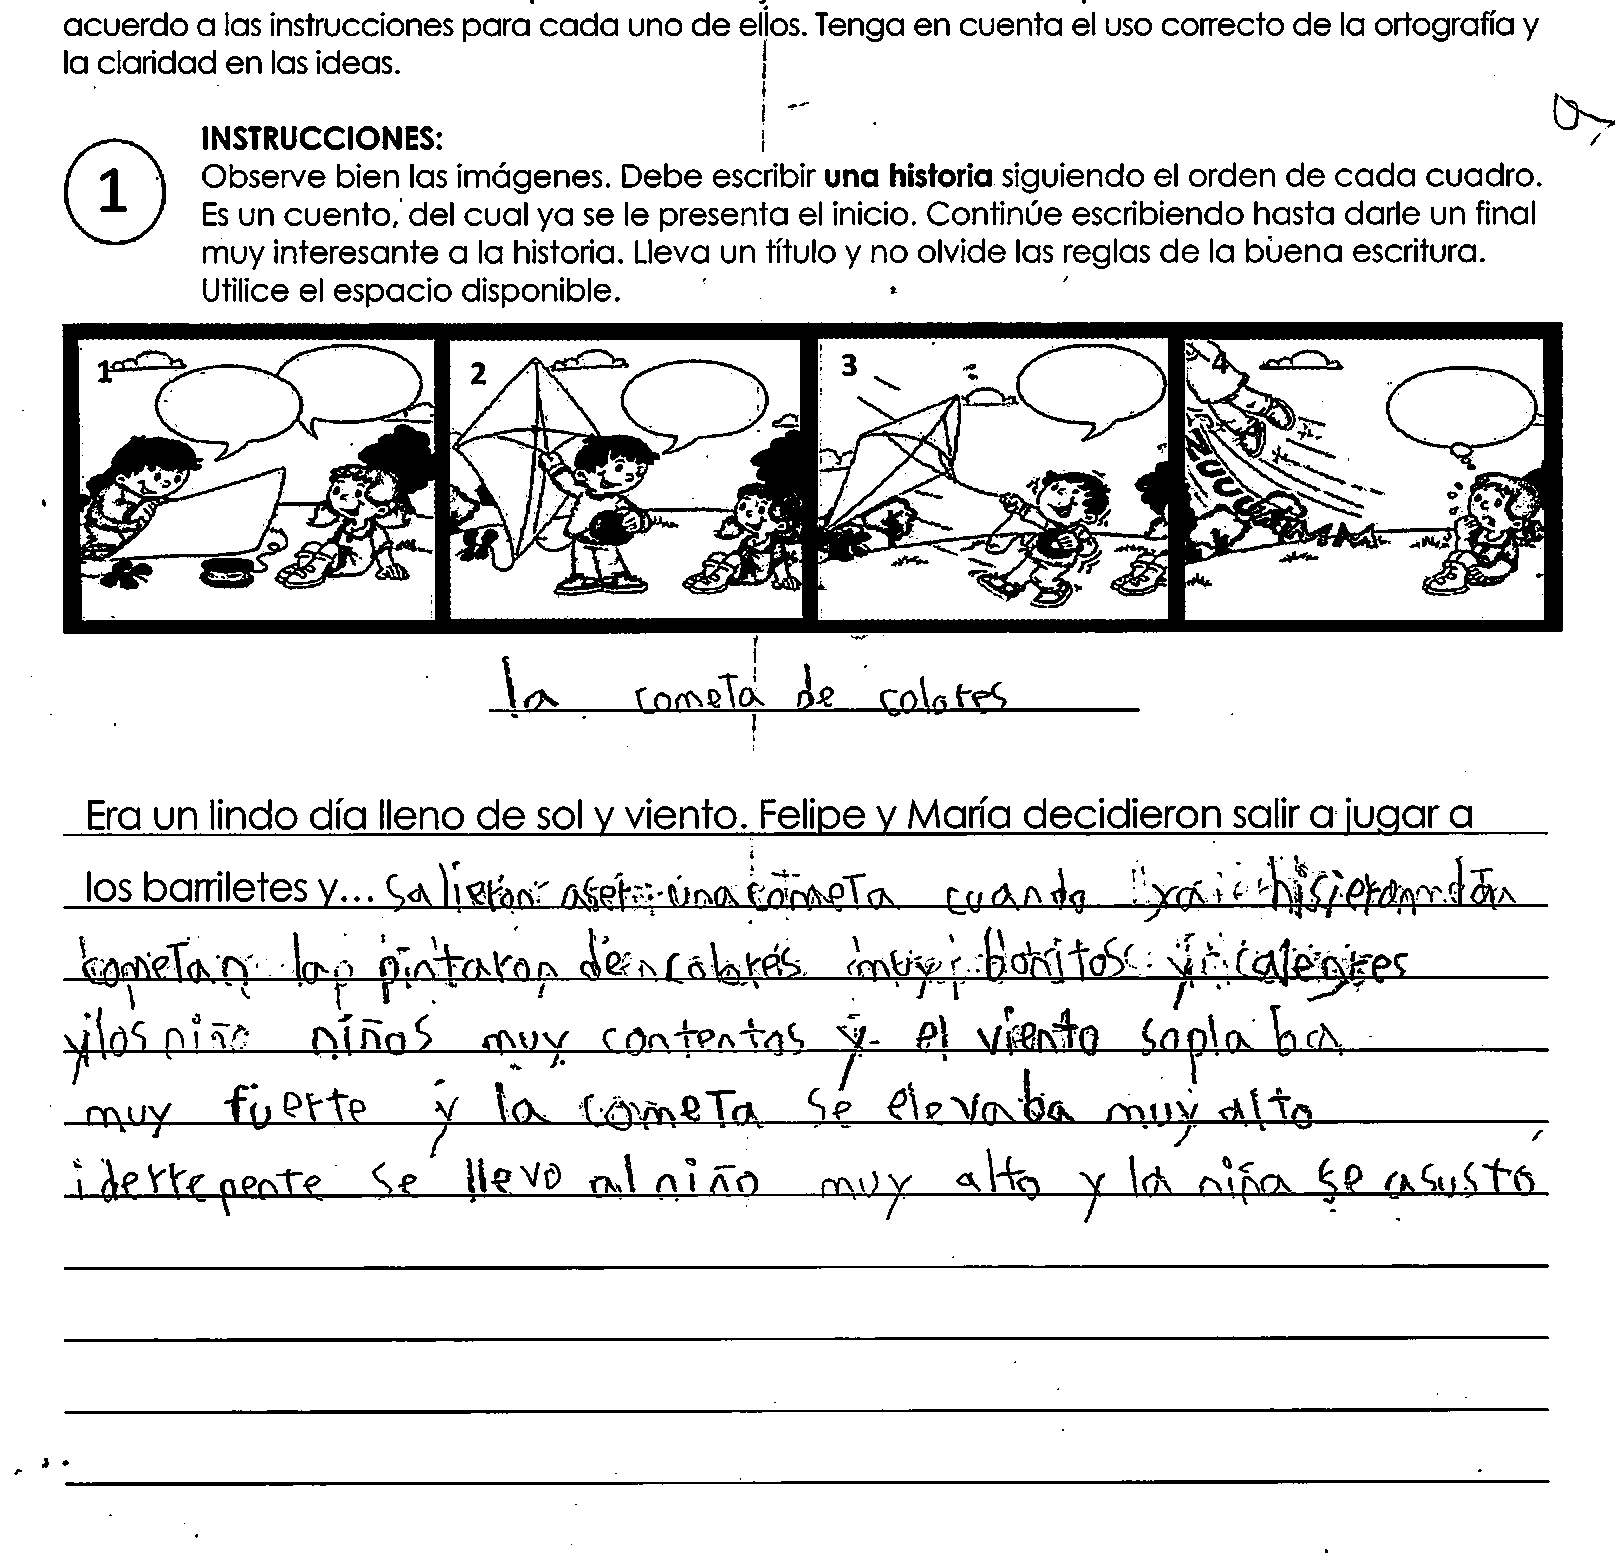 acuerdo a las instrucciones para cada uno de ellos. Tenga en cuenta el uso correcto de la ortografía y
la claridad en las ideas.
INSTRUCCIONES:
1
Observe bien las imágenes. Debe escribir una historia siguiendo el orden de cada cuadro.
Es un cuento, del cual ya se le presenta el inicio. Continúe escribiendo hasta darle un final
muy interesante a la historia. Lleva un título y no olvide las reglas de la buena escritura.
Utilice el espacio disponible.
1 2 3 4
la cometa de colores
Era un lindo día lleno de sol y viento. Felipe y María decidieron salir a jugar a
los barriletes y... salieron aser una cometa cuando ya hisieron
cometa la pintaron de colores muy bonitos y alegres
y los niño niños muy contentos y el viento sopla ba
muy fuerte y la cometa se elevaba muy alto
iderrepente se llevo al niño muy alto y la niña se asustó